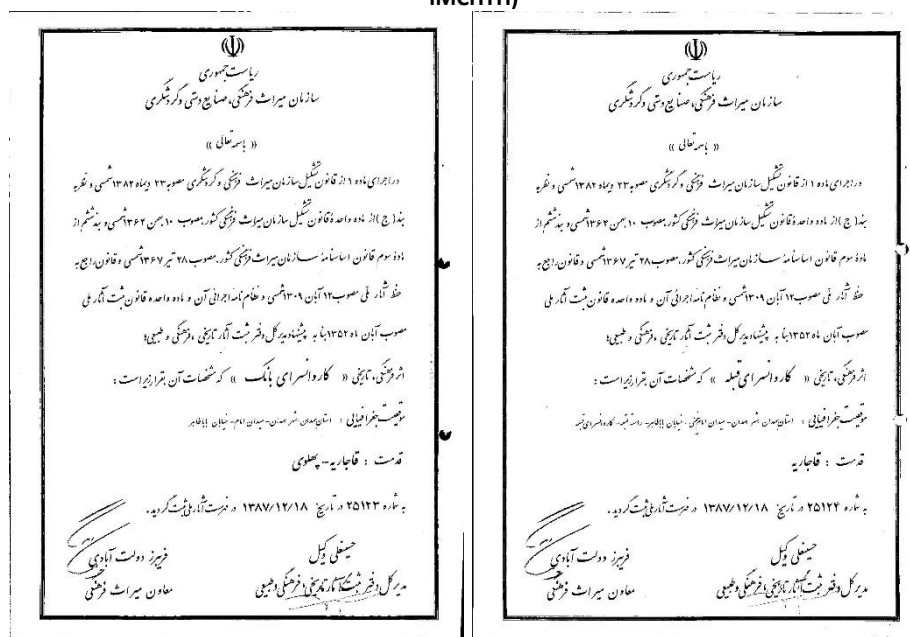 ریاست جمهوری
سازمان میراث فرهنگی، صنایع دستی و گردشگری
« باسمه تعالی »
در اجرای ماده ۱ از قانون تشکیل سازمان میراث فرهنگی و گردشگری مصوبه ۲۳ دیماه ۱۳۸۲ شمسی و نظر به
بند ( ج ) از ماده واحده قانون تشکیل سازمان میراث فرهنگی کشور، مصوب ۱۰ بهمن ۱۳۶۴ شمسی و بند ششم از
مادهٔ سوم قانون اساسنامهٔ سازمان میراث فرهنگی کشور، مصوب ۲۸ تیر ۱۳۶۷ شمسی و قانون راجع به
حفظ آثار ملی مصوب ۱۲ آبان ۱۳۰۹ شمسی و نظام نامه اجرائی آن و ماده واحده قانون ثبت آثار ملی
مصوب آبان ماه ۱۳۵۲ بنا به پیشنهاد مدیر کل دفتر ثبت آثار تاریخی ، فرهنگی و طبیعی؛
اثر فرهنگی، تاریخی « کاروانسرای بانک » که مشخصات آن بقرار زیر است :
موقعیت جغرافیایی : استان همدان- شهر همدان- میدان امام- خیابان باباطاهر
قدمت : قاجاریه -- پهلوی
به شماره ۲۵۱۲۳ در تاریخ ۱۳۸۷/۱۲/۱۸ در فهرست آثار ملی ثبت گردید.
حسینعلی وکیل
مدیر کل دفتر ثبت آثار تاریخی، فرهنگی و طبیعی
فریبرز دولت آبادی
معاون میراث فرهنگی
ریاست جمهوری
سازمان میراث فرهنگی، صنایع دستی و گردشگری
« باسمه تعالی »
در اجرای ماده ۱ از قانون تشکیل سازمان میراث فرهنگی و گردشگری مصوبه ۲۳ دیماه ۱۳۸۲ شمسی و نظر به
بند ( ج ) از ماده واحده قانون تشکیل سازمان میراث فرهنگی کشور، مصوب ۱۰ بهمن ۱۳۶۴ شمسی و بند ششم از
مادهٔ سوم قانون اساسنامهٔ سازمان میراث فرهنگی کشور، مصوب ۲۸ تیر ۱۳۶۷ شمسی و قانون راجع به
حفظ آثار ملی مصوب ۱۲ آبان ۱۳۰۹ شمسی و نظام نامه اجرائی آن و ماده واحده قانون ثبت آثار ملی
مصوب آبان ماه ۱۳۵۲ بنا به پیشنهاد مدیر کل دفتر ثبت آثار تاریخی ، فرهنگی و طبیعی؛
اثر فرهنگی، تاریخی « کاروانسرای قبله » که مشخصات آن بقرار زیر است :
موقعیت جغرافیایی : استان همدان- شهر همدان- میدان امام خمینی- خیابان باباطاهر- راسته قبله- کاروانسرای قبله
قدمت : قاجاریه
به شماره ۲۵۱۲۴ در تاریخ ۱۳۸۷/۱۲/۱۸ در فهرست آثار ملی ثبت گردید.
حسینعلی وکیل
مدیر کل دفتر ثبت آثار تاریخی، فرهنگی و طبیعی
فریبرز دولت آبادی
معاون میراث فرهنگی